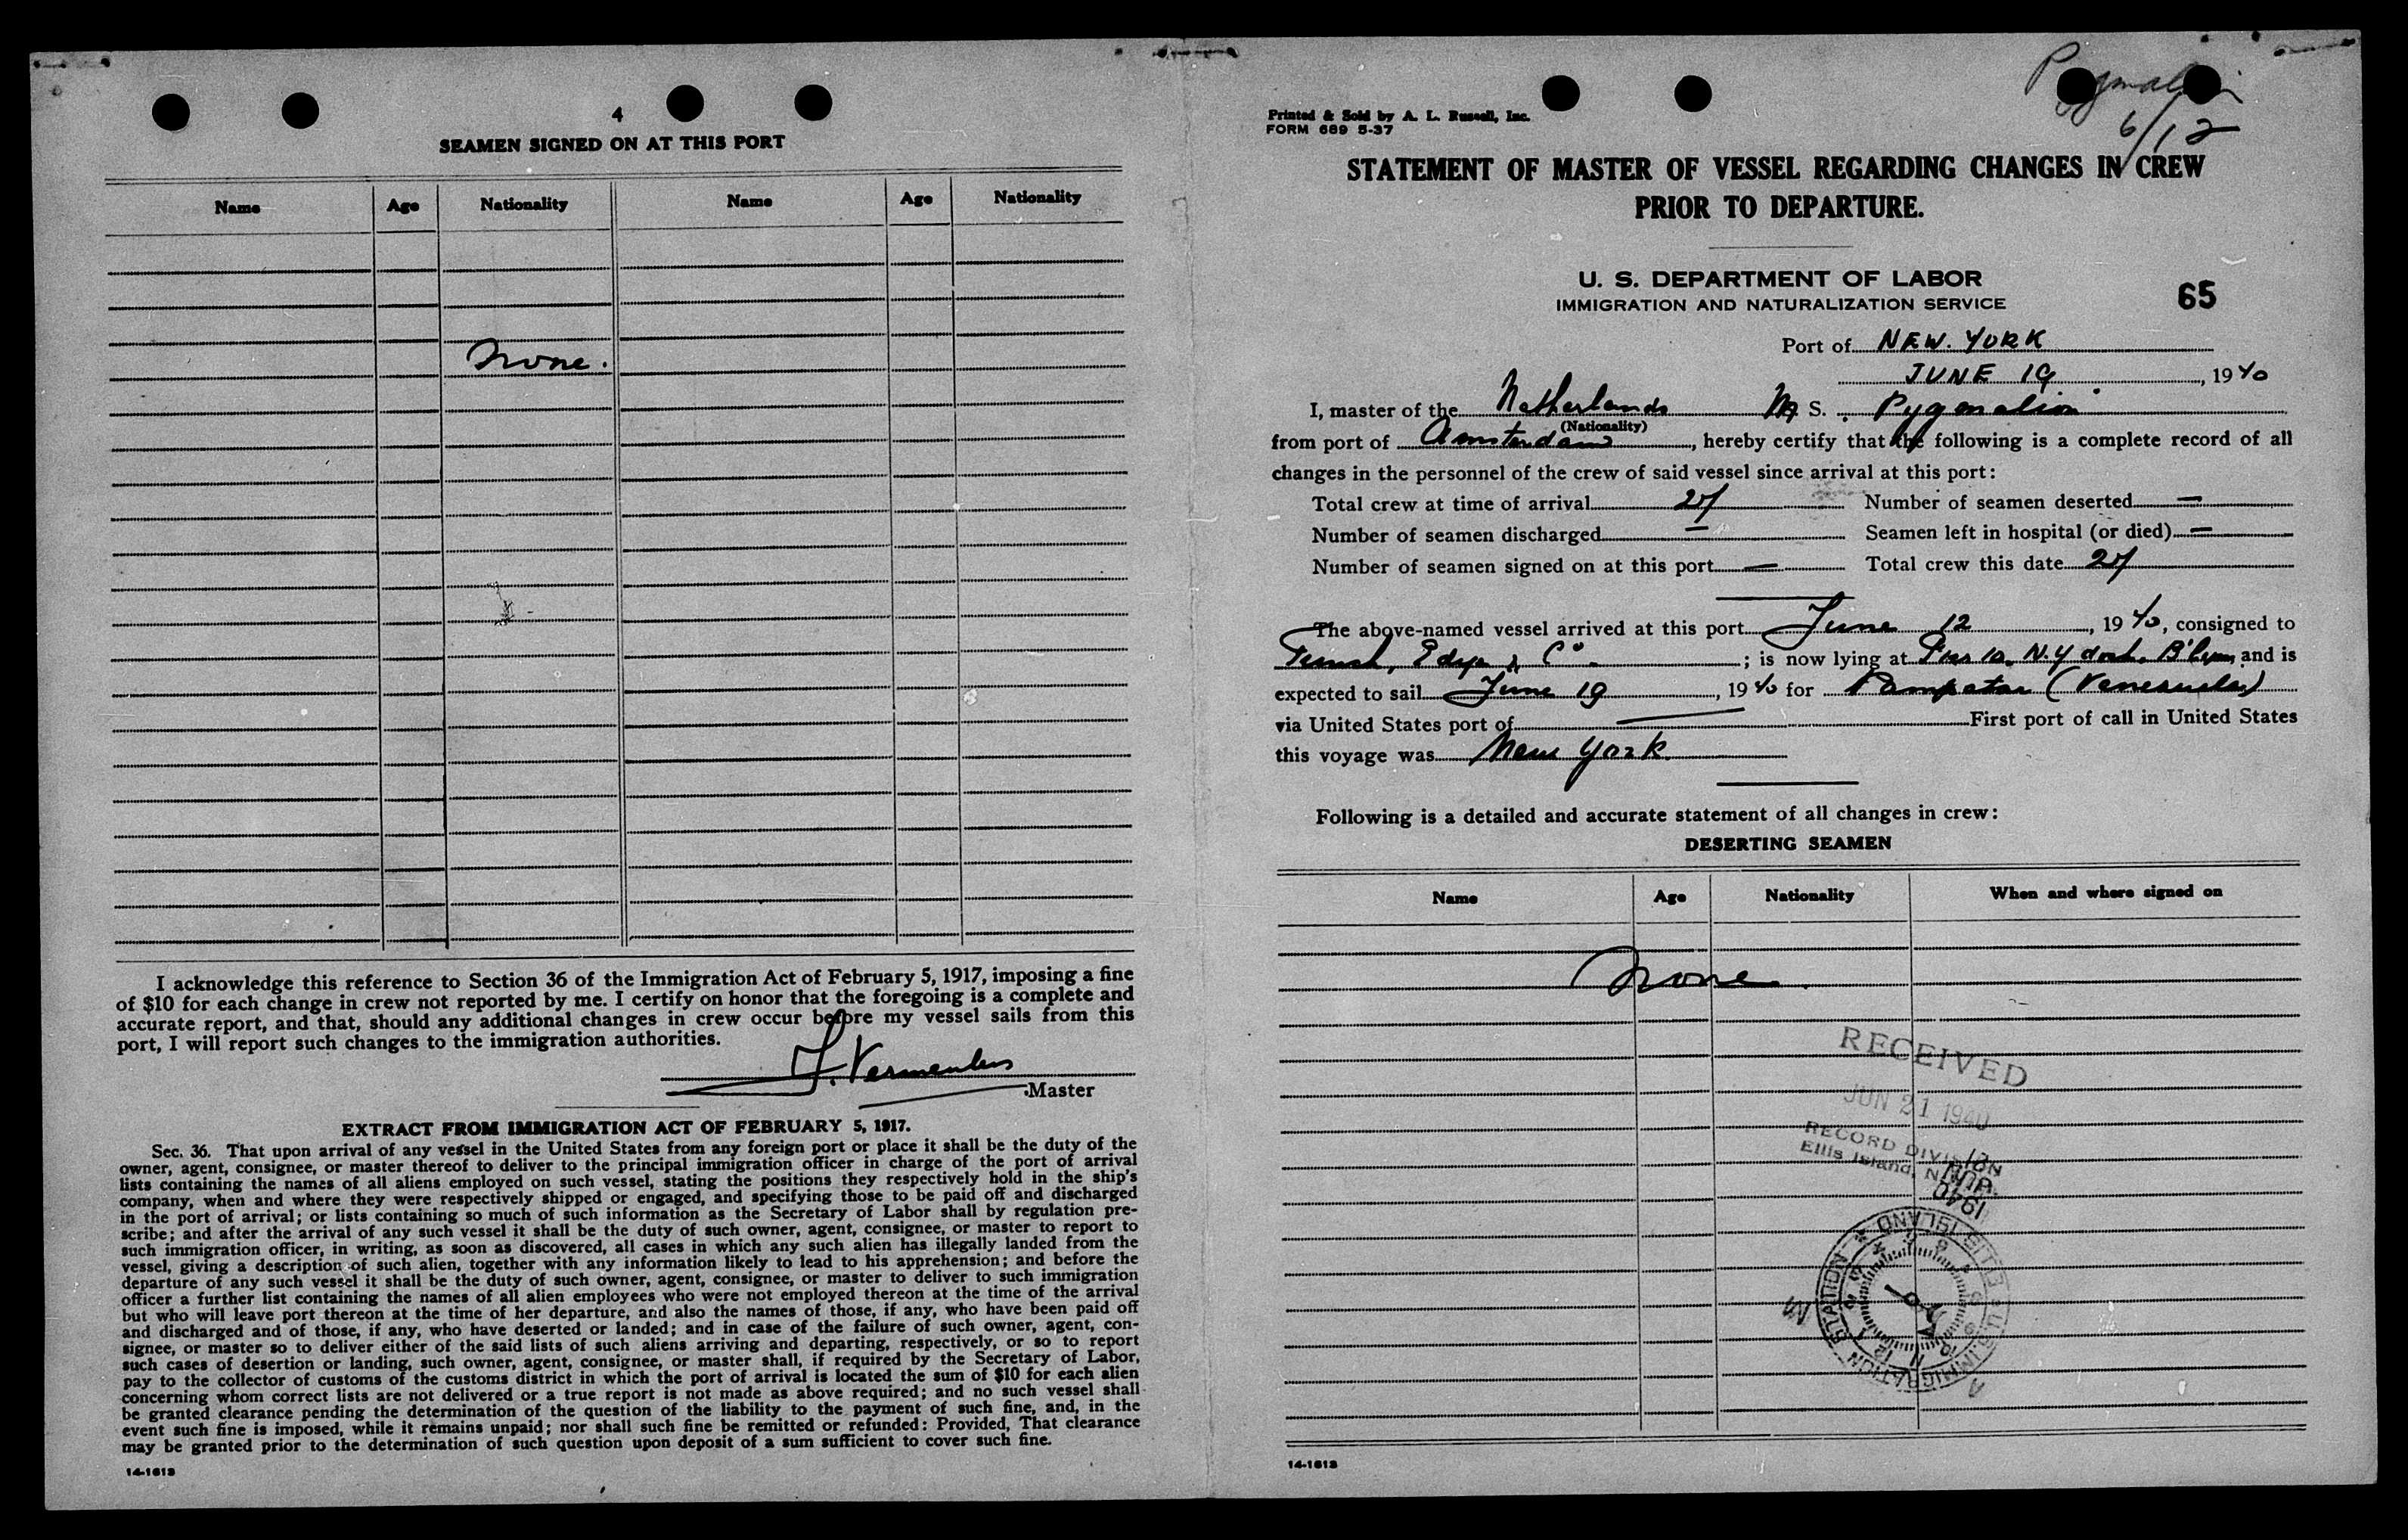 4
SEAMEN SIGNED ON AT THIS PORT
Name Age Nationality Name Age Nationality
None.
I acknowledge this reference to Section 36 of the Immigration Act of February 5, 1917, imposing a fine
of $10 for each change in crew not reported by me. I certify on honor that the foregoing is a complete and
accurate report, and that, should any additional changes in crew occur before my vessel sails from this
port, I will report such changes to the immigration authorities.
Master
EXTRACT FROM IMMIGRATION ACT OF FEBRUARY 5, 1917.
Sec. 36. That upon arrival of any vessel in the United States from any foreign port or place it shall be the duty of the
owner, agent, consignee, or master thereof to deliver to the principal immigration officer in charge of the port of arrival
lists containing the names of all aliens employed on such vessel, stating the positions they respectively hold in the ship's
company, when and where they were respectively shipped or engaged, and specifying those to be paid off and discharged
in the port of arrival; or lists containing so much of such information as the Secretary of Labor shall by regulation pre-
scribe; and after the arrival of any such vessel it shall be the duty of such owner, agent, consignee, or master to report to
such immigration officer, in writing, as soon as discovered, all cases in which any such alien has illegally landed from the
vessel, giving a description of such alien, together with any information likely to lead to his apprehension; and before the
departure of any such vessel it shall be the duty of such owner, agent, consignee, or master to deliver to such immigration
officer a further list containing the names of all alien employees who were not employed thereon at the time of the arrival
but who will leave port thereon at the time of her departure, and also the names of those, if any, who have been paid off
and discharged and of those, if any, who have deserted or landed; and in case of the failure of such owner, agent, con-
signee, or master so to deliver either of the said lists of such aliens arriving and departing, respectively, or so to report
such cases of desertion or landing, such owner, agent, consignee, or master shall, if required by the Secretary of Labor,
pay to the collector of customs of the customs district in which the port of arrival is located the sum of $10 for each alien
concerning whom correct lists are not delivered or a true report is not made as above required; and no such vessel shall
be granted clearance pending the determination of the question of the liability to the payment of such fine, and, in the
event such fine is imposed, while it remains unpaid; nor shall such fine be remitted or refunded: Provided, That clearance
may be granted prior to the determination of such question upon deposit of a sum sufficient to cover such fine.
14-1613
Pygmalion
6/12
Printed & Sold by A. L. Russell, Inc.
FORM 689 5-37
STATEMENT OF MASTER OF VESSEL REGARDING CHANGES IN CREW
PRIOR TO DEPARTURE.
U. S. DEPARTMENT OF LABOR
IMMIGRATION AND NATURALIZATION SERVICE
65
Port of NEW. YORK
JUNE 19, 1940
I, master of the Netherlands M S. Pygmalion
(Nationality)
from port of Amsterdam, hereby certify that the following is a complete record of all
changes in the personnel of the crew of said vessel since arrival at this port:
Total crew at time of arrival 27 Number of seamen deserted —
Number of seamen discharged — Seamen left in hospital (or died) —
Number of seamen signed on at this port — Total crew this date 27
The above-named vessel arrived at this port June 12, 1940, consigned to
Co. ; is now lying at Pier 10. N.Y dock. B'lyn, and is
expected to sail June 19, 1940 for Pampatar (Venezuela)
via United States port of — First port of call in United States
this voyage was New York.
Following is a detailed and accurate statement of all changes in crew:
DESERTING SEAMEN
Name Age Nationality When and where signed on
None
RECEIVED
JUN 21 1940
RECORD DIVISION
Ellis Island,
1940
U.S. IMMIGRATION STATION ELLIS ISLAND
14-1613